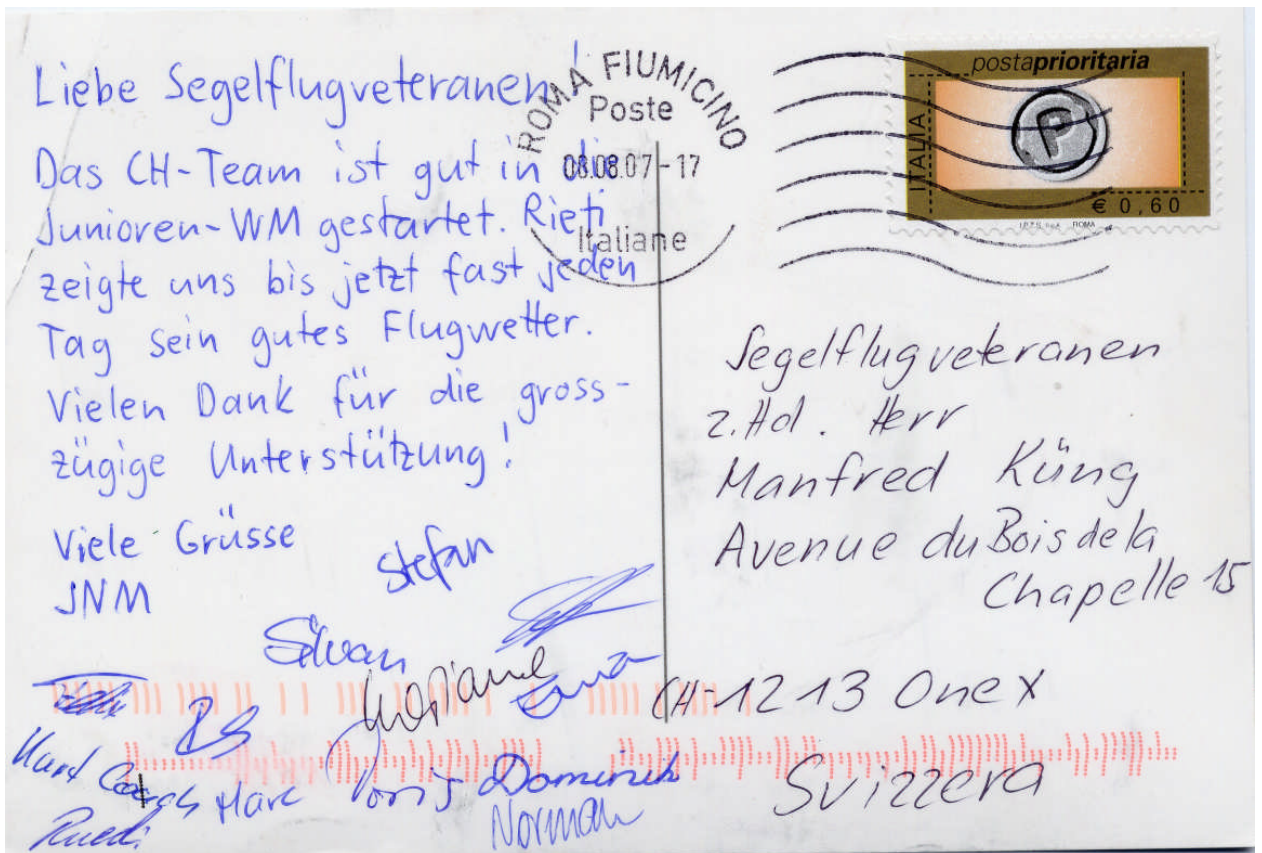 Liebe Segelflugveteranen!
Das CH-Team ist gut in die
Junioren-WM gestartet. Rieti
zeigte uns bis jetzt fast jeden
Tag sein gutes Flugwetter.
Vielen Dank für die gross-
zügige Unterstützung!
Viele Grüsse
JNM
Stefan
Silvan
Marc
Doris
Dominik
Norman
Ruedi
ROMA FIUMICINO
Poste
08.08.07-17
Italiane
postaprioritaria
P
ITALIA
€ 0,60
ROMA
Segelflugveteranen
z.Hd. Herr
Manfred Küng
Avenue du Bois de la
Chapelle 15
CH-1213 Onex
Svizzera